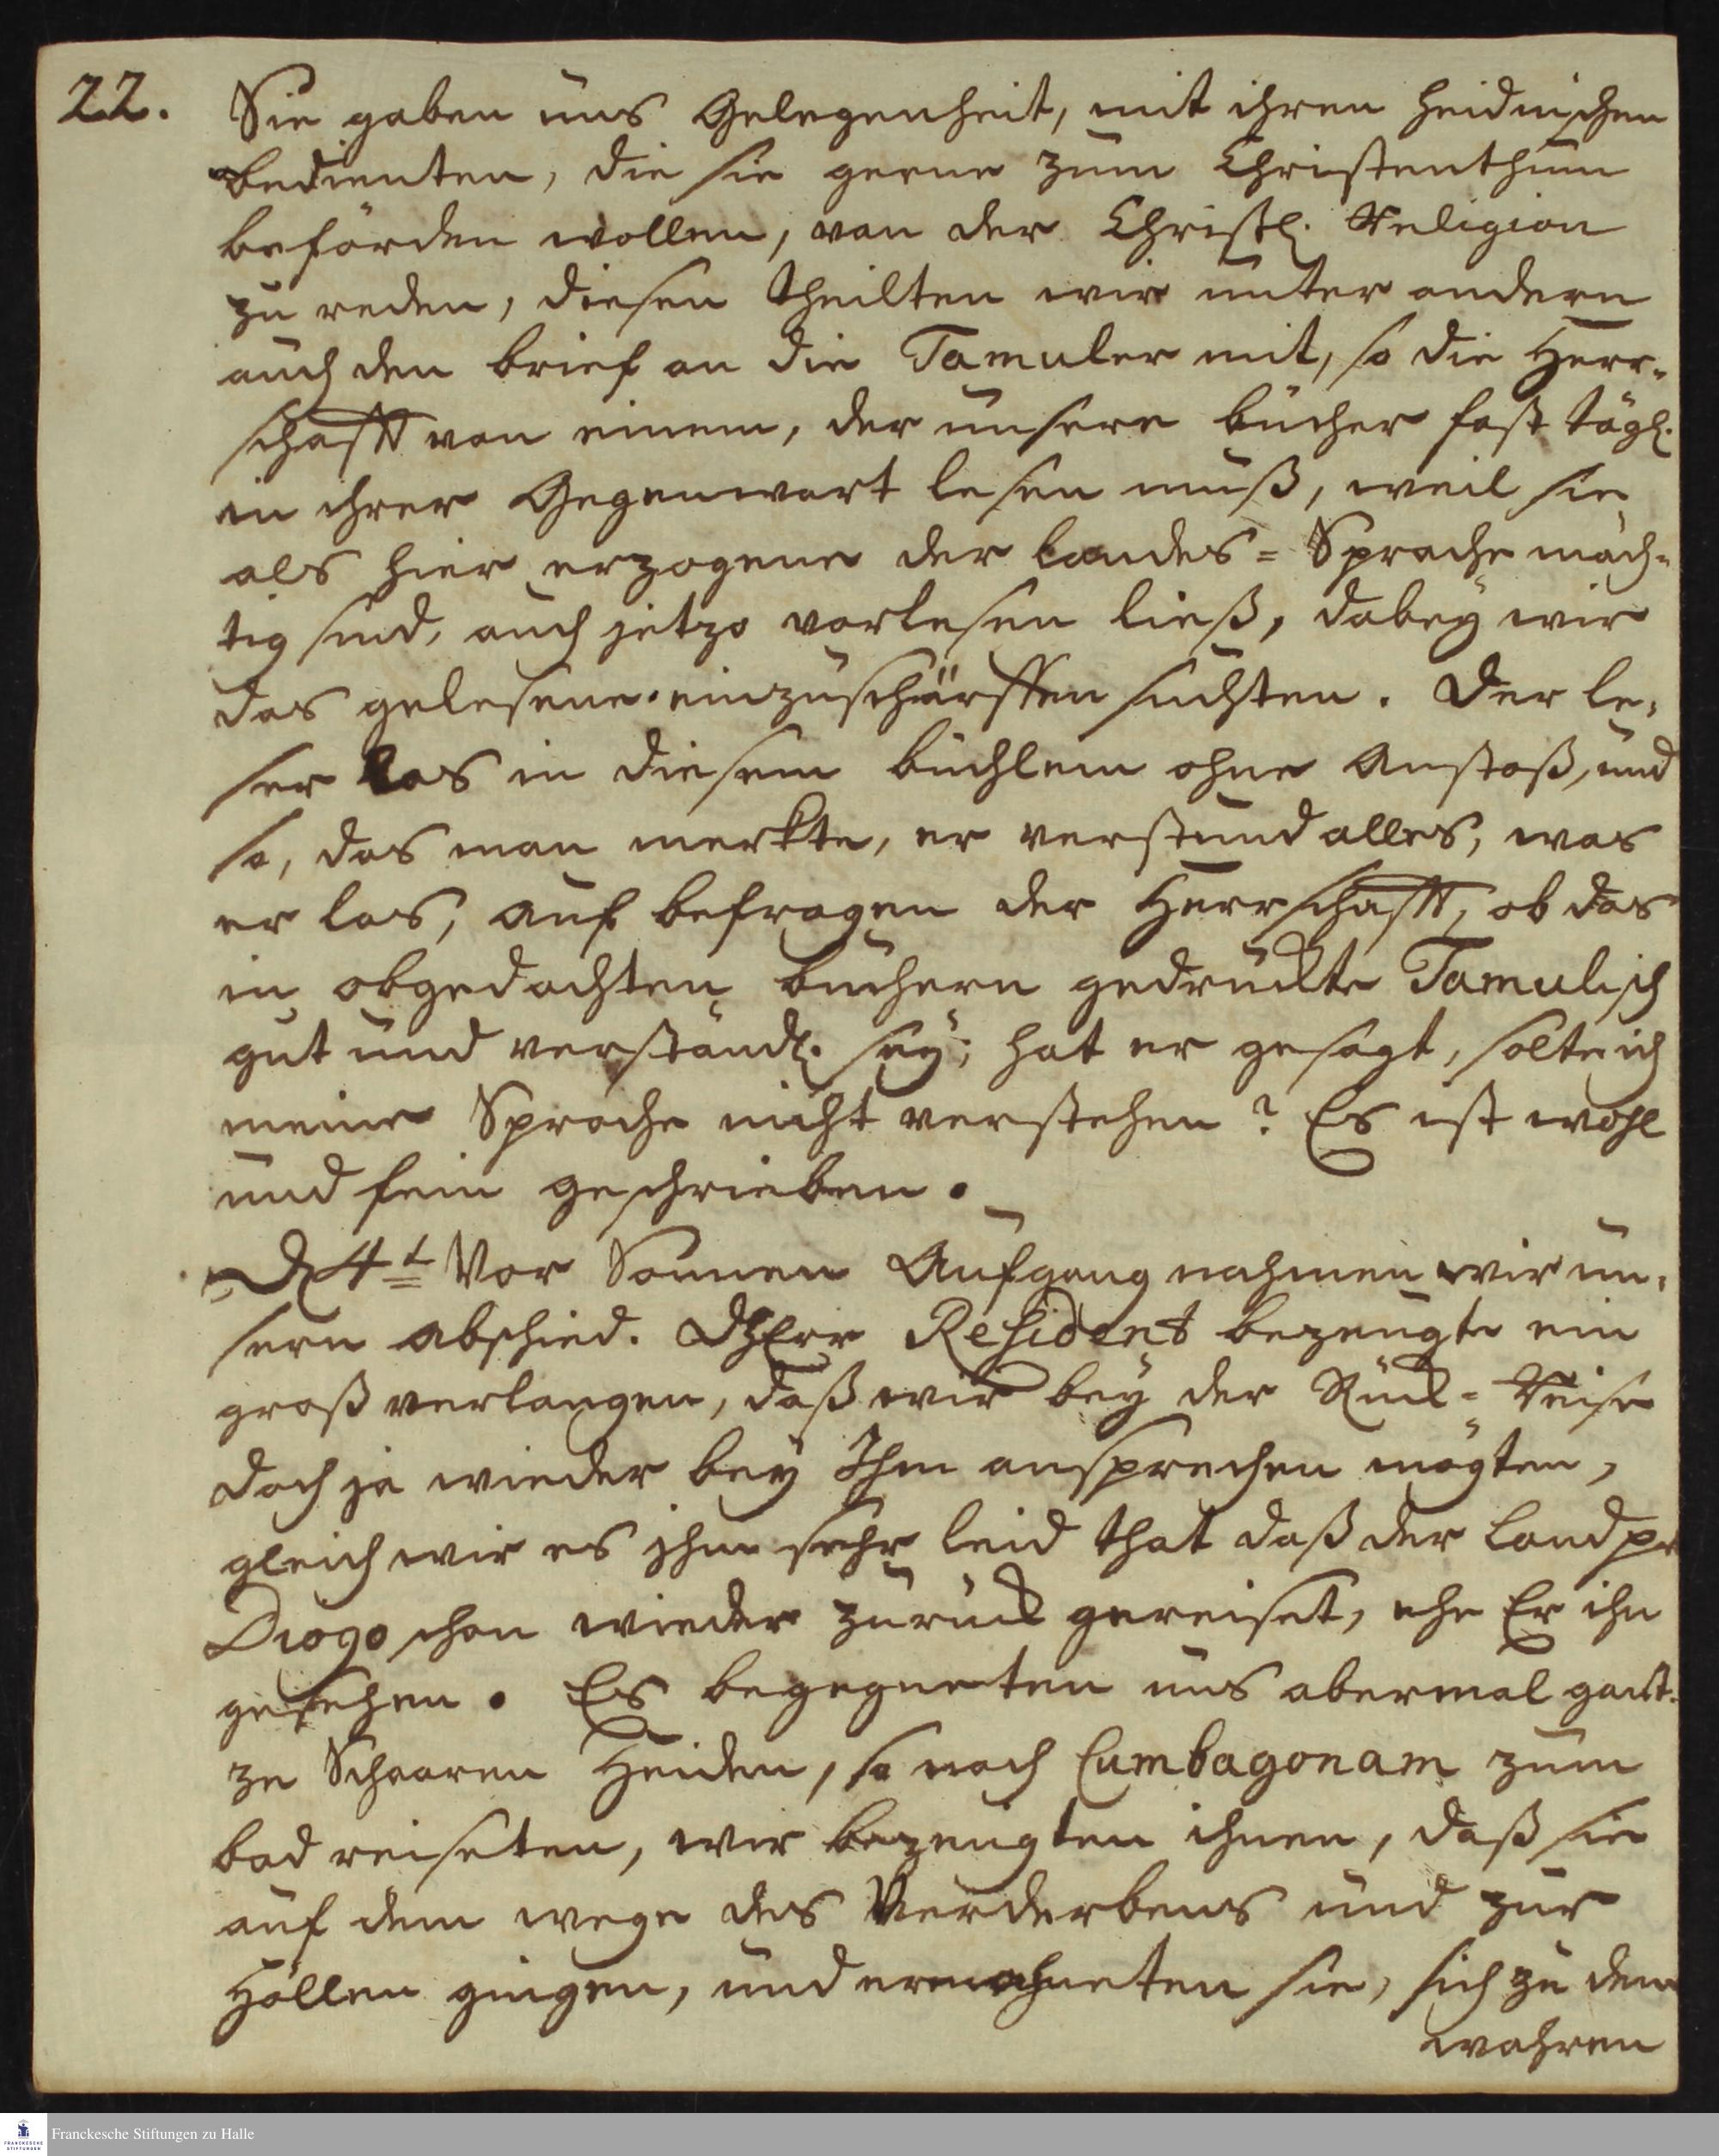 22.
Sie gaben uns Gelegenheit, mit ihren heidnischen
bedienten, die sie gerne zum Christenthum
beförden wollen, von der Christl. Religion
zu reden, diesen theilten wir unter andern
auch den brief an die Tamuler mit, so die Herr-
schafft von einem, der unsere bücher fast tägl.
in ihrer Gegenwart lesen muß, weil sie
als hier erzogene der landes- Sprache mäch-
tig sind, auch jetzo vorlesen ließ, dabey wir
das gelesene einzuschärffen suchten. Der le-
ser las in diesem büchlein ohne Anstoß, und
so, das man merkte, er verstund alles, was
er las, auf befragen der Herrschafft, ob das
in obgedachten büchern gedruckte Tamulisch
gut und verständl. sey; hat er gesagt, solte ich
meine Sprache nicht verstehen? Es ist wohl
und fein geschrieben.
D 4t Vor Sonnen Aufgang nahmen wir un-
sern abschied. D HErr Resident bezeugte ein
groß verlangen, daß wir bey der Rück- Reise
doch ja wieder bey Ihm ansprechen mögten,
gleich wie es jhm sehr leid that daß der landpr
Diogo schon wieder zurück gereiset, ehe Er ihn
gesehen. Es begegneten uns abermal gant-
ze Schaaren Heiden, so nach Cumbagonam zum
bad reiseten, wir bezeugten ihnen, daß sie
auf dem wege des Verderbens und zur
Höllen gingen, und ermahneten sie, sich zu dem
wahren
Franckesche Stiftungen zu Halle
FRANCKESCHE
STIFTUNGEN